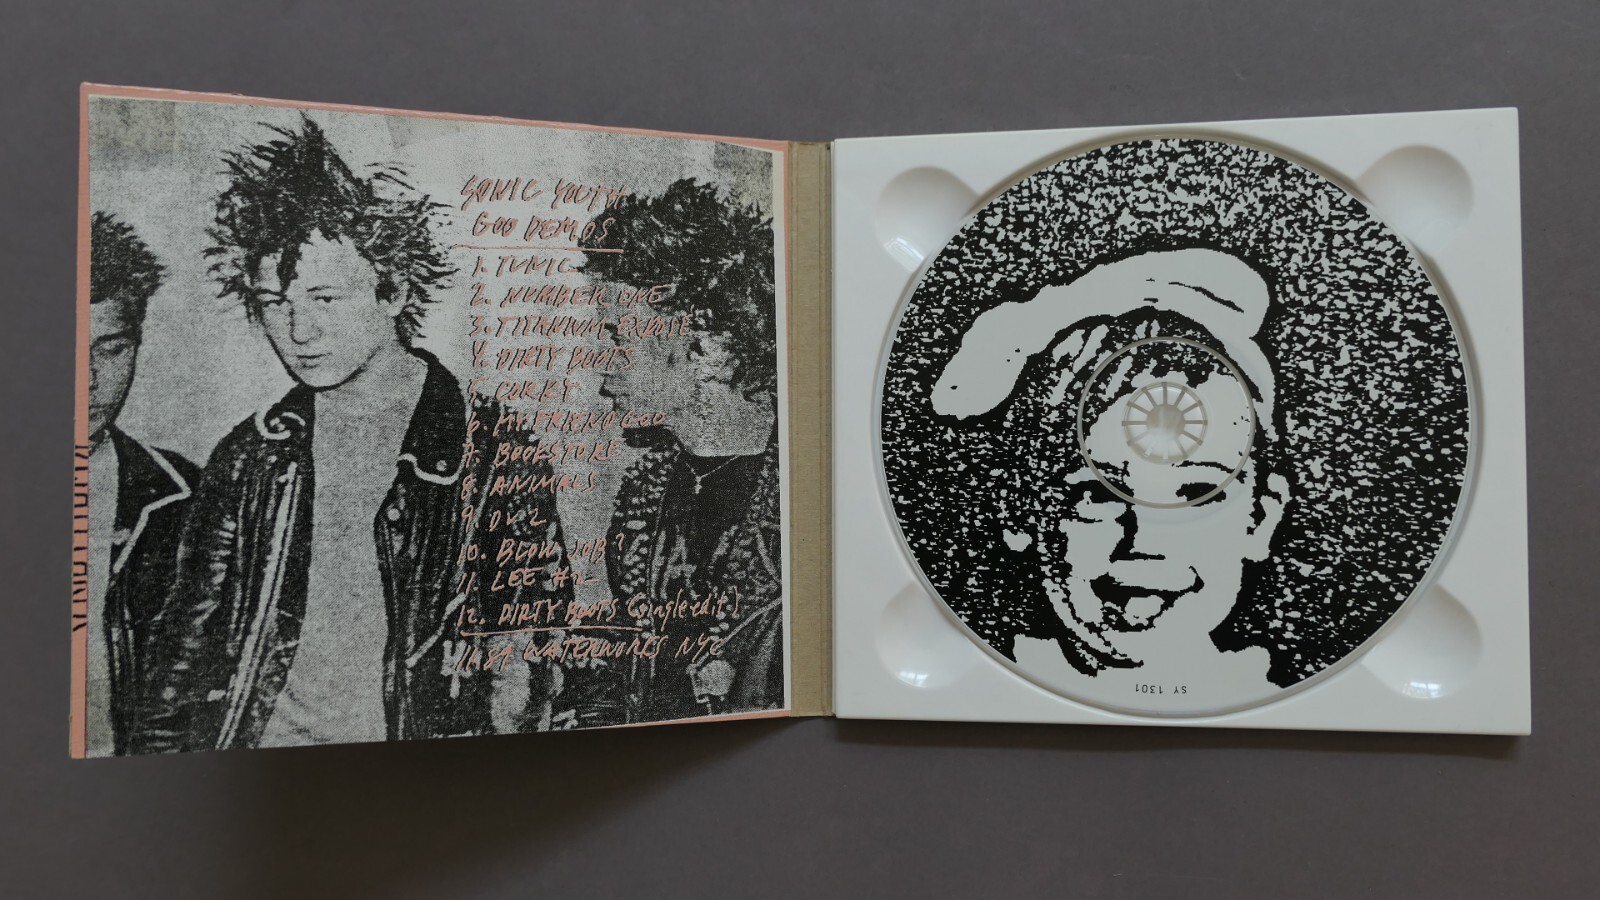 SONIC YOUTH
GOO DEMOS
1. TUNIC
2. NUMBER ONE
3. TITANIUM EXPOSÉ
4. DIRTY BOOTS
5. CORKY
6. MY FRIEND GOO
7. BOOKSTORE
8. ANIMALS
9. DV2
10. BLOW JOB?
11. LEE #2
12. DIRTY BOOTS (single edit)
11·89 WATERWORKS NYC
SY 1301